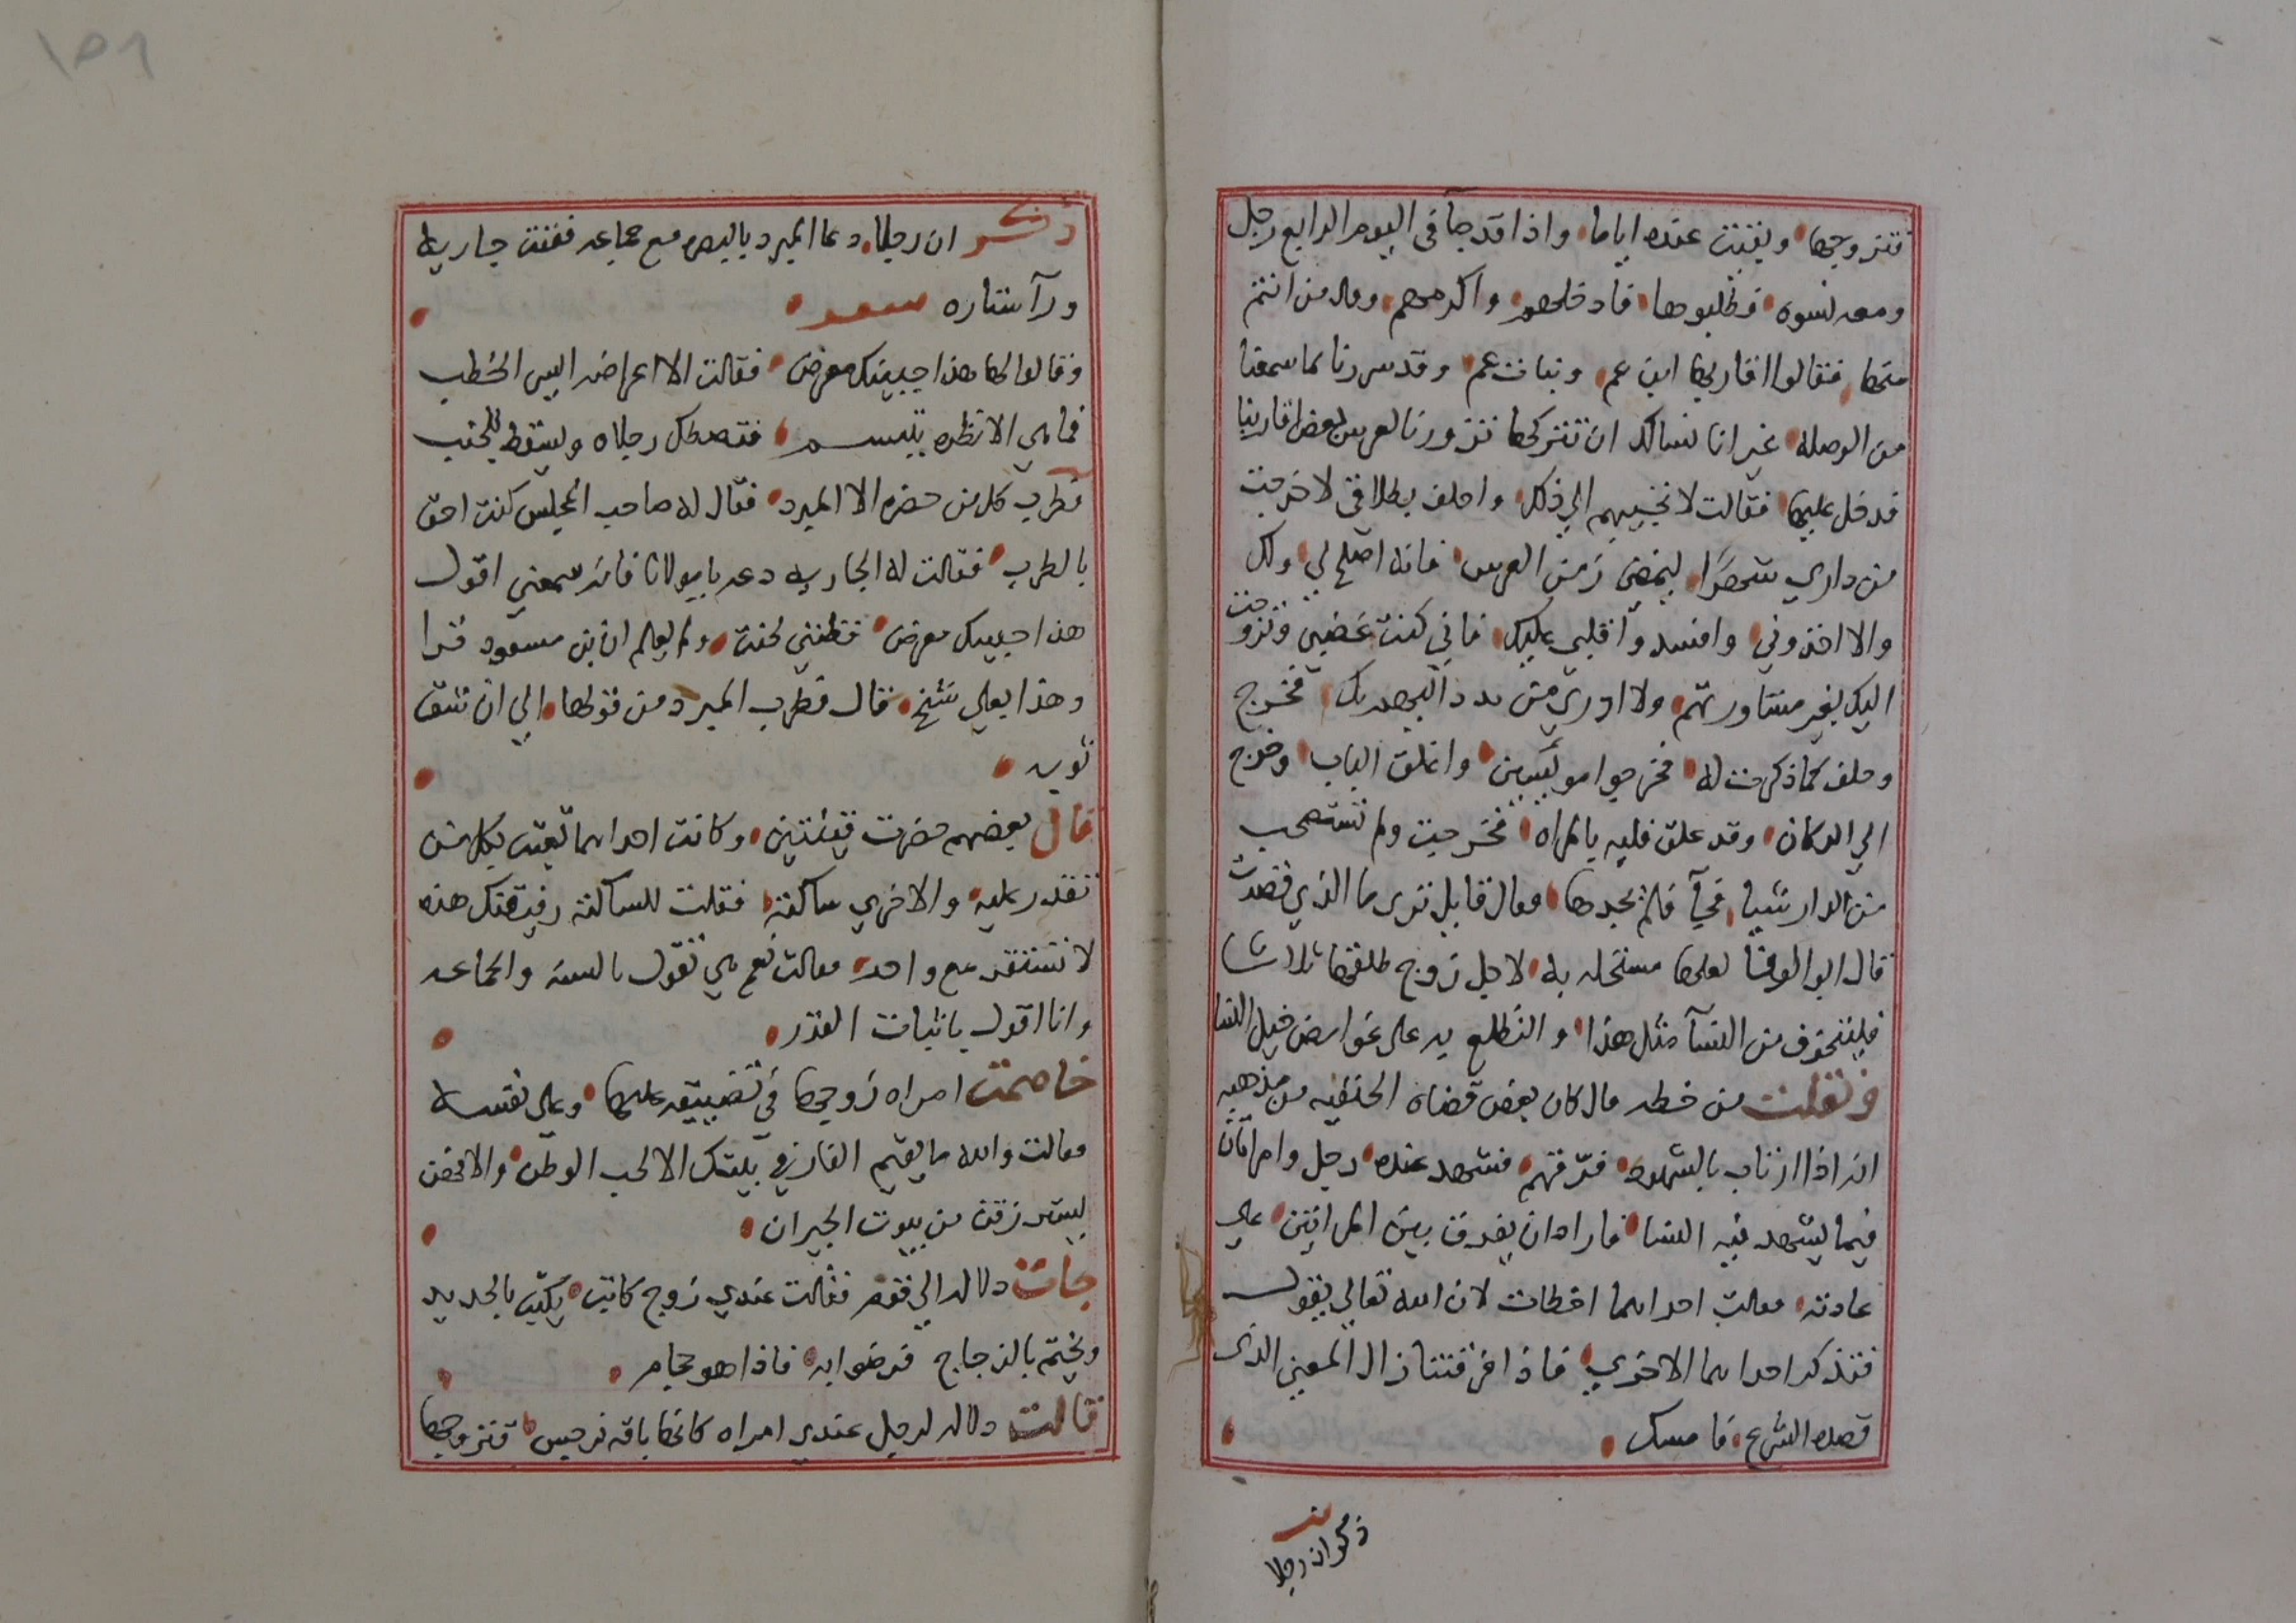 فتزوجها وبقيت عنده اياما واذا قد جا في اليوم الرابع رجل
ومعه نسوه فطلبوها فادخلهم واكرمهم وقال من انتم
منها فقالوا اقاربها ابن عم وبنات عم وقد سررنا لما سمعنا
من الوصله غير انا نسالك ان تتركها تزورنا لعرس بعض اقاربنا
فدخل عليها فقالت لا تجيبهم الي ذلك واحلف بطلاقي لا خرجت
من داري شهرا ليمضي زمن العرس فانه اصلح لي ولك
والا اخذوني وافسدوا قلبي عليك فاني كنت غضبى وتزوجت
اليك بغير مشاورتهم ولا ادري من دلهم اليك فخرج
وحلف كما ذكرت له فخرجوا مويسين واغلق الباب وخرج
الي الدكان وقد علق قلبه بالمراه فخرجت ولم تستصحب
من الدار شيا فجآ فلم يجدها فقال قايل ترى ما الذي قصدت
قال ابو الوفا لعلها مستحله به لاجل زوج طلقها ثلاثا
فليتخوف من النسآ مثل هذا والتطلع به على غوامض حيل النسا
ونقلت من خطه قال كان بعض قضاه الحنفيه من مذهبه
انه اذا ارتاب بالشهود فرقهم فشهد عنده رجل وامراتان
فيما يشهد فيه النسا فاراد ان يفرق بين المراتين علي
عادته فقالت احداهما اخطات لان الله تعالي يقول
فتذكر احداهما الاخري فاذا افرقتنا زال المعنى الذي
قصده الشرع فامسك
ذكر ان رجلا
ذكر ان رجلا دعا المبرد بالبصره مع جماعه فغنت جاريه
ورآ ستاره شعر
وقالوا لها هذا حبيبك معرض فقالت الا اعراضه ايسر الخطب
فما هي الا نظره بتبسم فتصطك رجلاه ويسقط للجنب
فطرب كل من حضره الا المبرد فقال له صاحب المجلس كنت احق
بالطرب فقالت له الجاريه دعه يا مولانا فانه سمعني اقول
هذا حبيبك معرض فظنني لحنت ولم يعلم ان ابن مسعود قرا
وهذا بعلي شيخ قال فطرب المبرد من قولها الي ان شق
ثوبه
قال بعضهم حضرت قينتين وكانت احداهما تعبث بكل من
تقدر عليه والاخري ساكنه فقلت للساكنه رفيقتك هذه
لا تستقر مع واحد فقالت نعم هي تقول بالسنه والجماعه
وانا اقول باثبات القدر
خاصمت امراه زوجها في تضييقه عليها وعلى نفسه
فقالت والله ما يقيم الفار في بيتك الا لحب الوطن والا فهن
يسترزقن من بيوت الجيران
جات دلاله الي قوم فقالت عندي زوج كاتب يكتب بالحديد
ويختم بالزجاج فرضوا به فاذا هو حجام
قالت دلاله لرجل عندي امراه كانها باقه نرجس فتزوجها